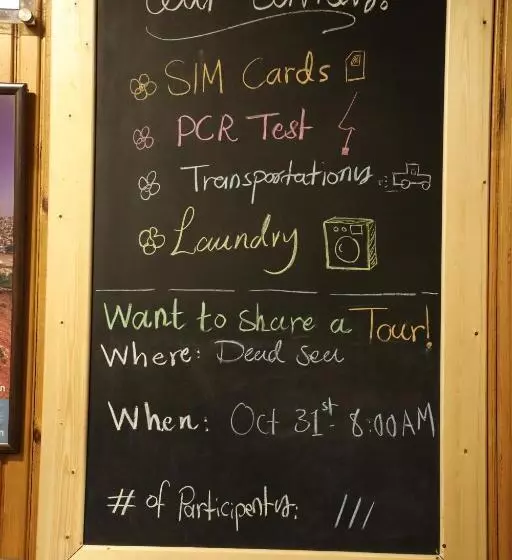 SIM Cards
PCR Test
Transportations
Laundry
Want to share a Tour!
Where: Dead sea
When: Oct 31st 8:00AM
# of Participents: ///